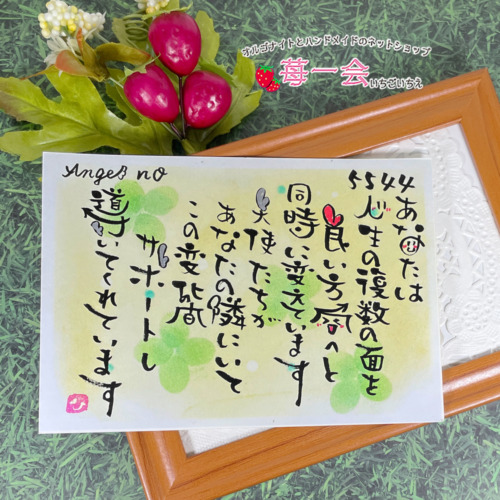 オルゴナイトとハンドメイドのネットショップ
苺一会
いちごいちえ
AngeB no
5544
あなたは
人生の複数の面を
良い方向へと
同時に変えています
天使たちが
あなたの隣にいて
この変化の間
サポートし
導いてくれています